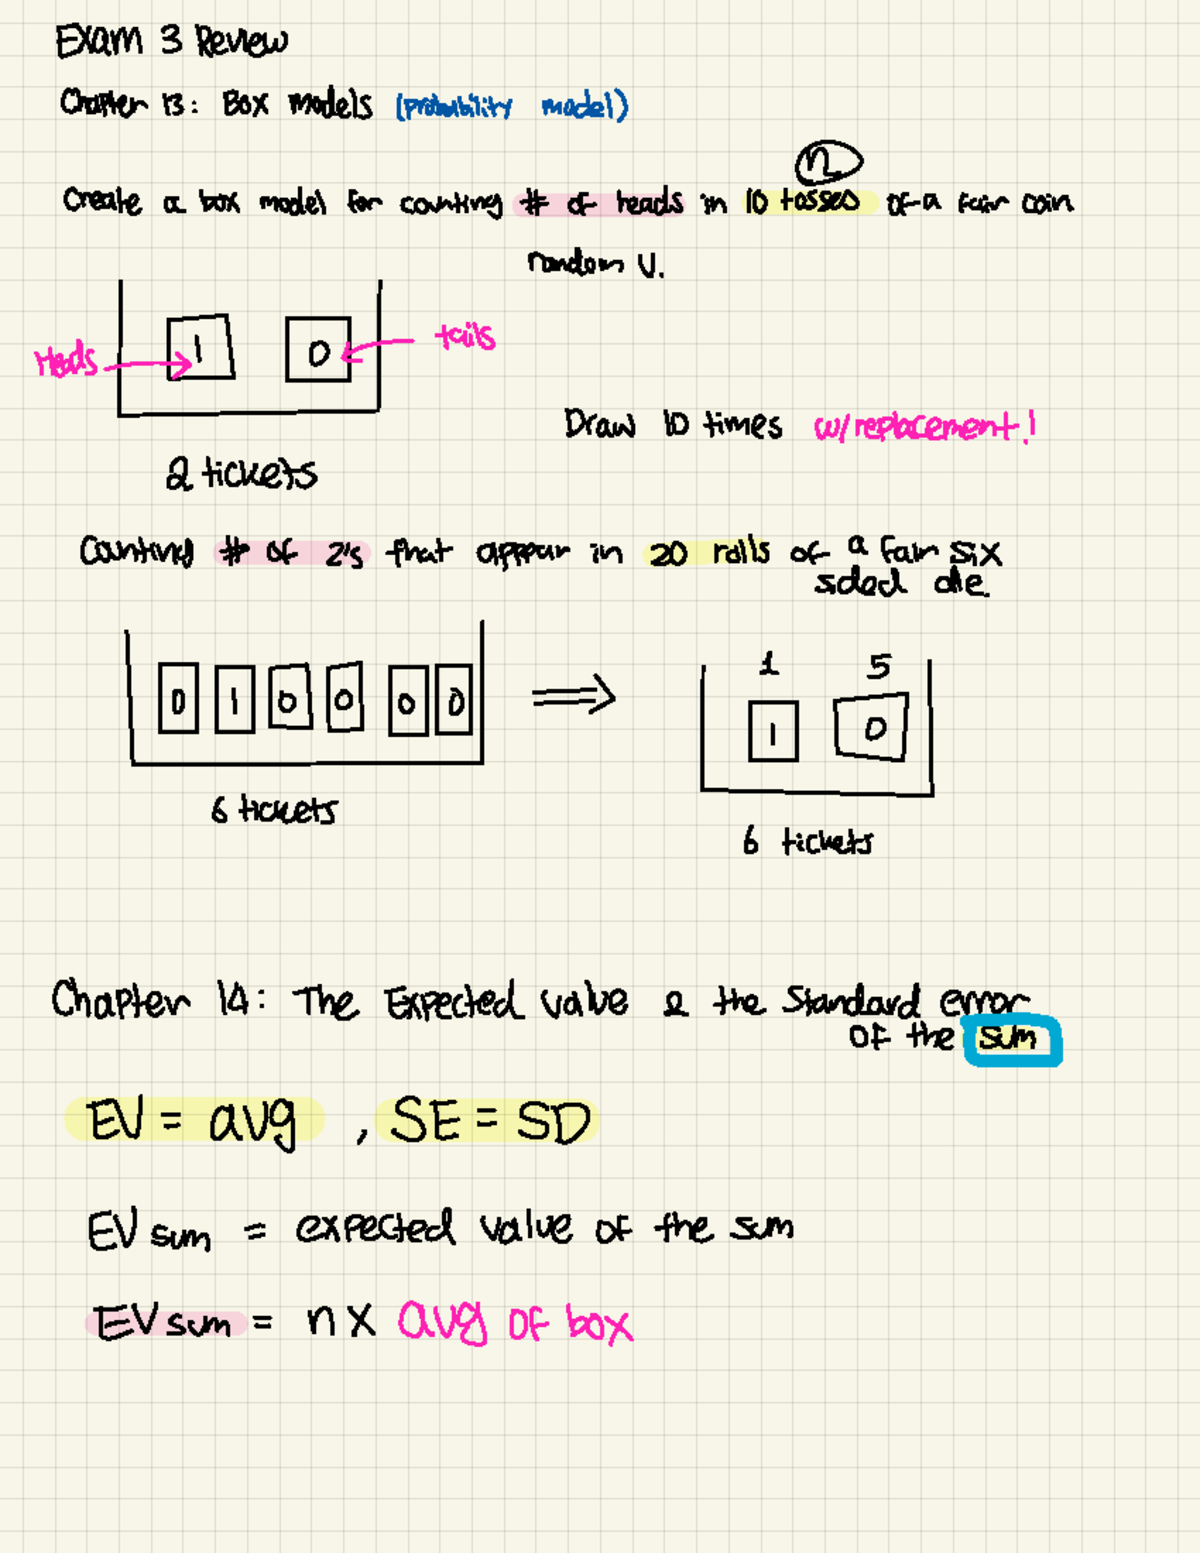 Exam 3 Review
Chapter 13: Box Models (probability model)
n
Create a box model for counting # of heads in 10 tosses of a fair coin
random V.
1 0
Heads
tails
Draw 10 times w/replacement!
2 tickets
Counting # of 2's that appear in 20 rolls of a fair six
sided die.
1 5
0 1 0 0 0 0 ⟹ 1 0
6 tickets
6 tickets
Chapter 14: The Expected value & the Standard error
of the sum
EV = avg , SE = SD
EV sum = expected value of the sum
EV sum = n x avg of box